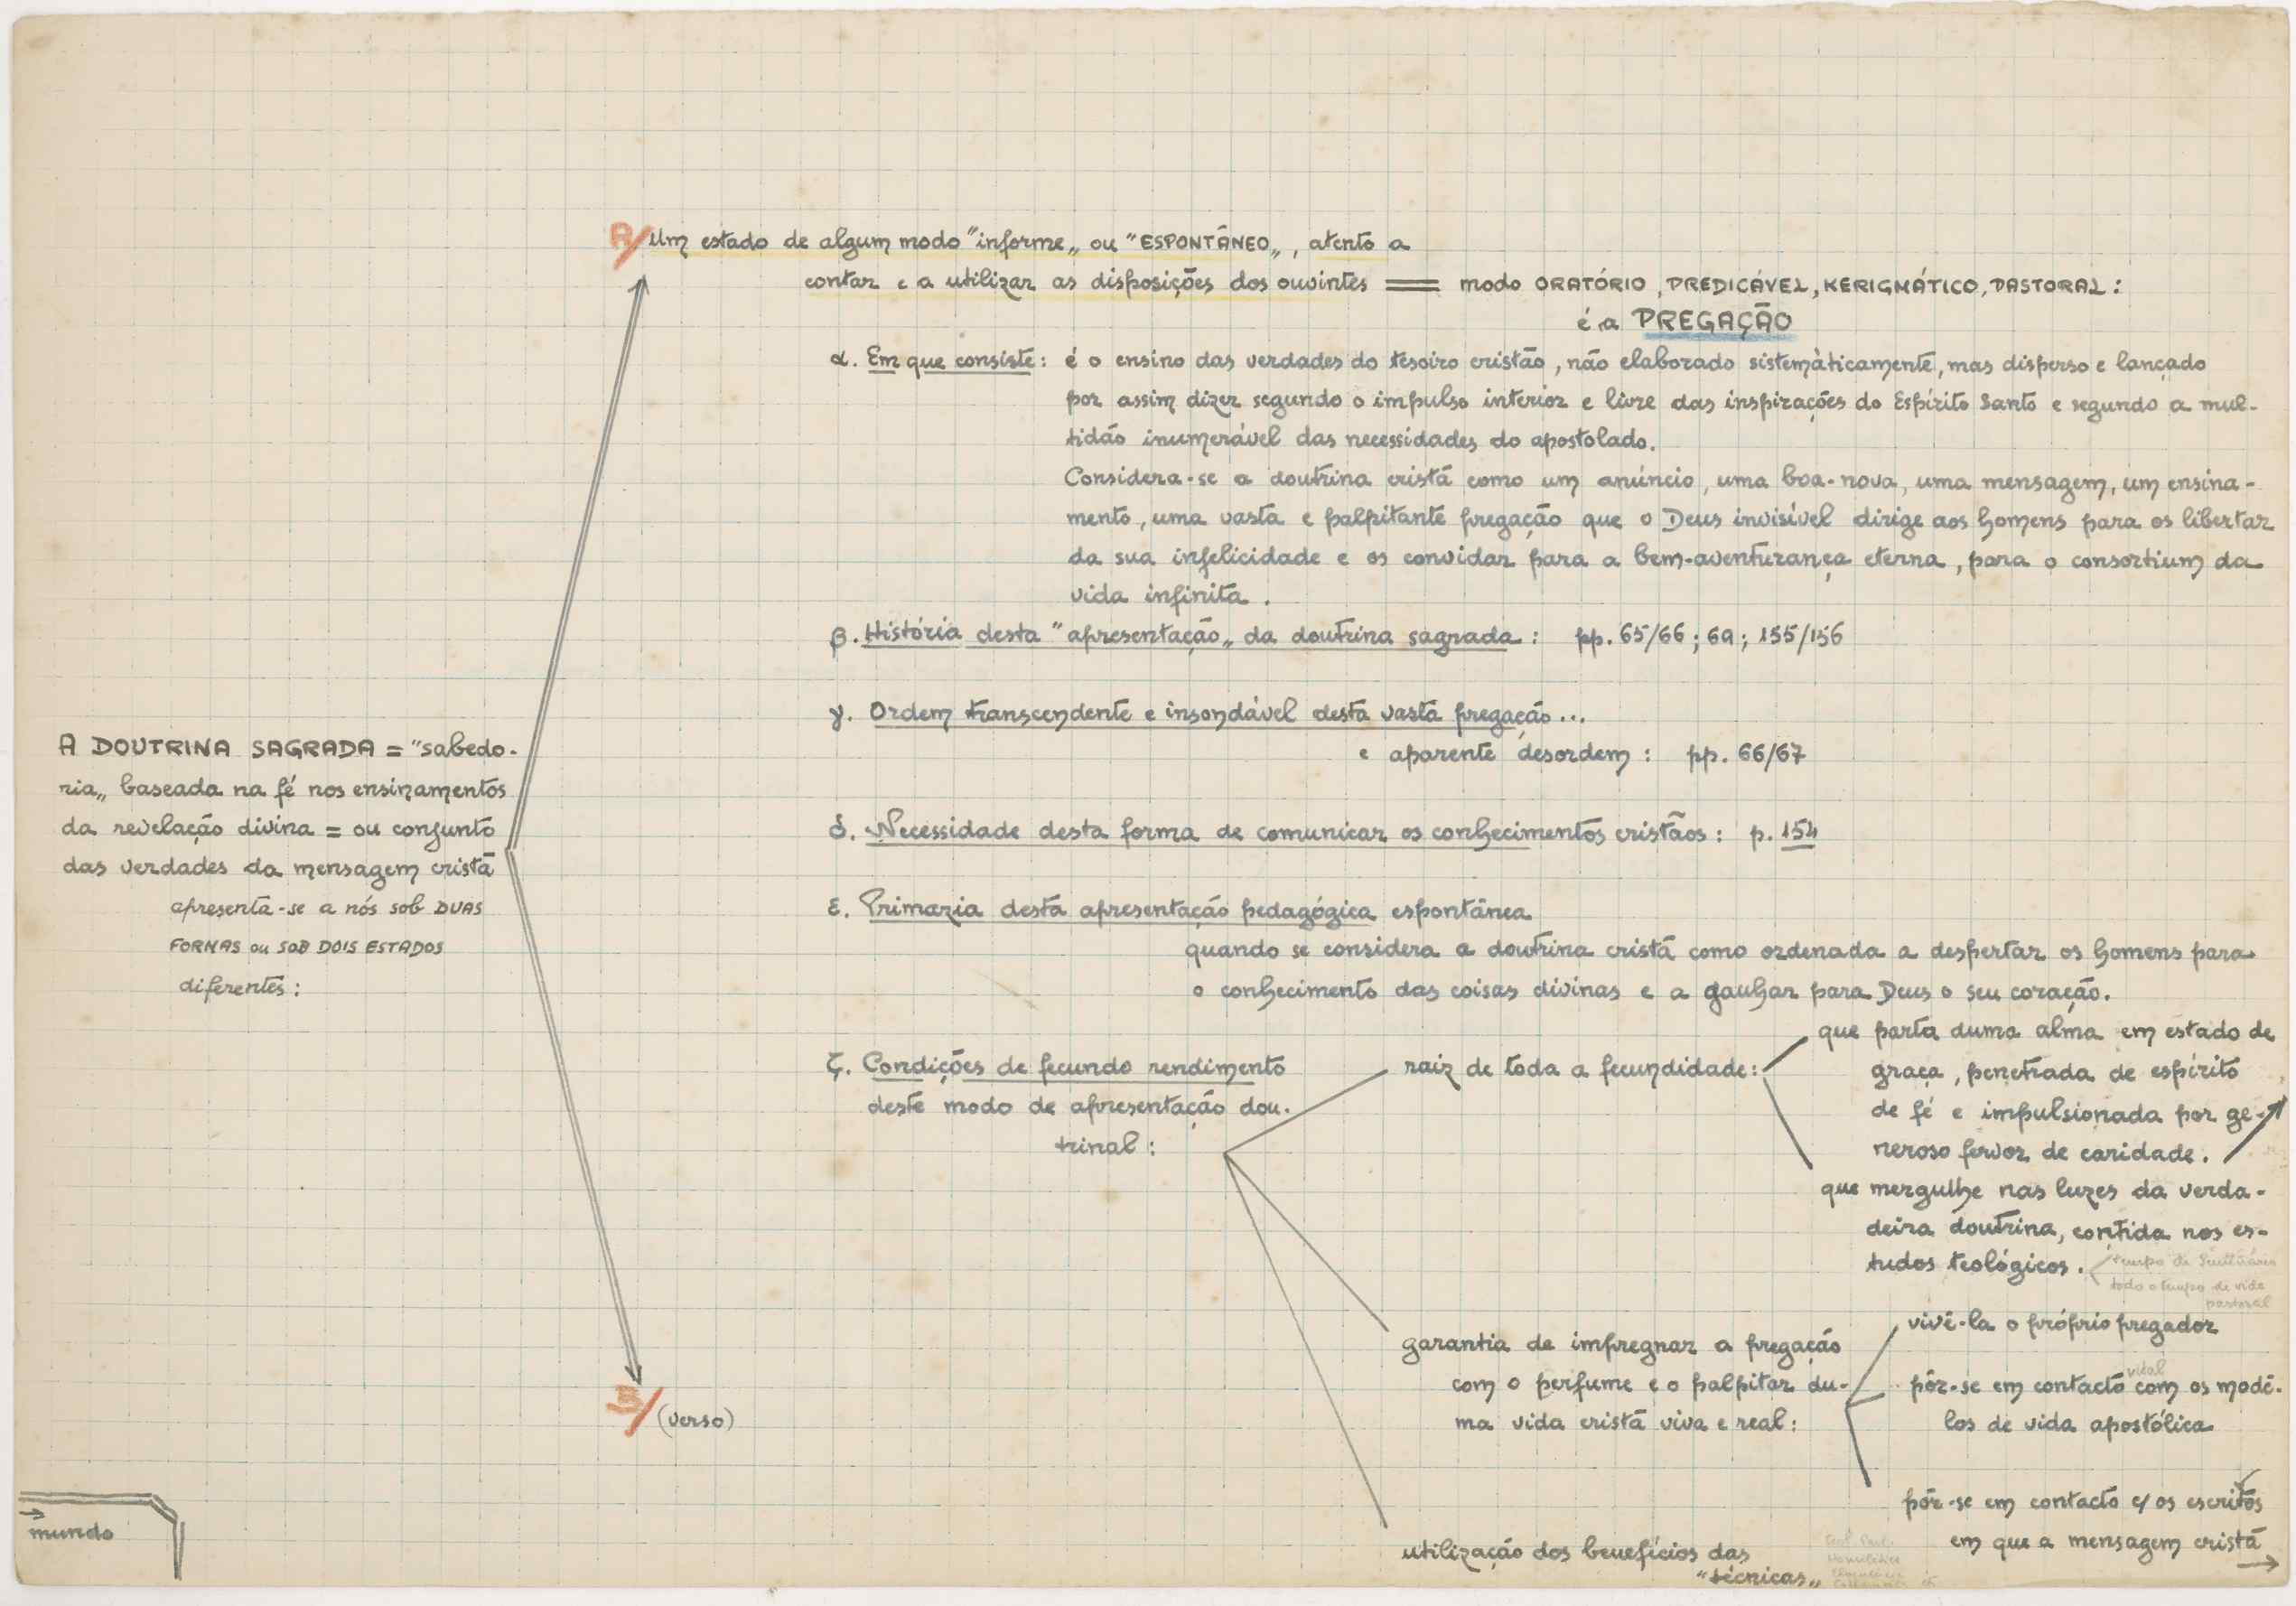 A DOUTRINA SAGRADA = "sabedo-
ria„ baseada na fé nos ensinamentos
da revelação divina = ou conjunto
das verdades da mensagem cristã
apresenta-se a nós sob DUAS
FORMAS ou SOB DOIS ESTADOS
diferentes:
A/ Um estado de algum modo "informe„ ou "ESPONTÂNEO„, atento a
contar e a utilizar as disposições dos ouvintes = modo ORATÓRIO, PREDICÁVEL, KERIGMÁTICO, PASTORAL:
é a PREGAÇÃO
α. Em que consiste: é o ensino das verdades do tesoiro cristão, não elaborado sistemàticamente, mas disperso e lançado
por assim dizer segundo o impulso interior e livre das inspirações do Espírito Santo e segundo a mul-
tidão inumerável das necessidades do apostolado.
Considera-se a doutrina cristã como um anúncio, uma boa-nova, uma mensagem, um ensina-
mento, uma vasta e palpitante pregação que o Deus invisível dirige aos homens para os libertar
da sua infelicidade e os convidar para a bem-aventurança eterna, para o consortium da
vida infinita.
β. História desta "apresentação„ da doutrina sagrada: pp. 65/66; 69; 155/156
γ. Ordem transcendente e insondável desta vasta pregação...
e aparente desordem: pp. 66/67
δ. Necessidade desta forma de comunicar os conhecimentos cristãos: p. 154
ε. Primazia desta apresentação pedagógica espontânea
quando se considera a doutrina cristã como ordenada a despertar os homens para
o conhecimento das coisas divinas e a ganhar para Deus o seu coração.
ζ. Condições de fecundo rendimento
deste modo de apresentação dou-
trinal:
raiz de toda a fecundidade:
que parta duma alma em estado de
graça, penetrada de espírito
de fé e impulsionada por ge-
neroso fervor de caridade.
que mergulhe nas luzes da verda-
deira doutrina, contida nos es-
tudos teológicos.
tempo de Seminário
todo o tempo de vida
pastoral
garantia de impregnar a pregação
com o perfume e o palpitar du-
ma vida cristã viva e real:
vivê-la o próprio pregador
pôr-se em contacto vital com os mode-
los de vida apostólica
pôr-se em contacto c/ os escritos
em que a mensagem cristã
→
utilização dos benefícios das
"técnicas„
B/ (verso)
→
mundo